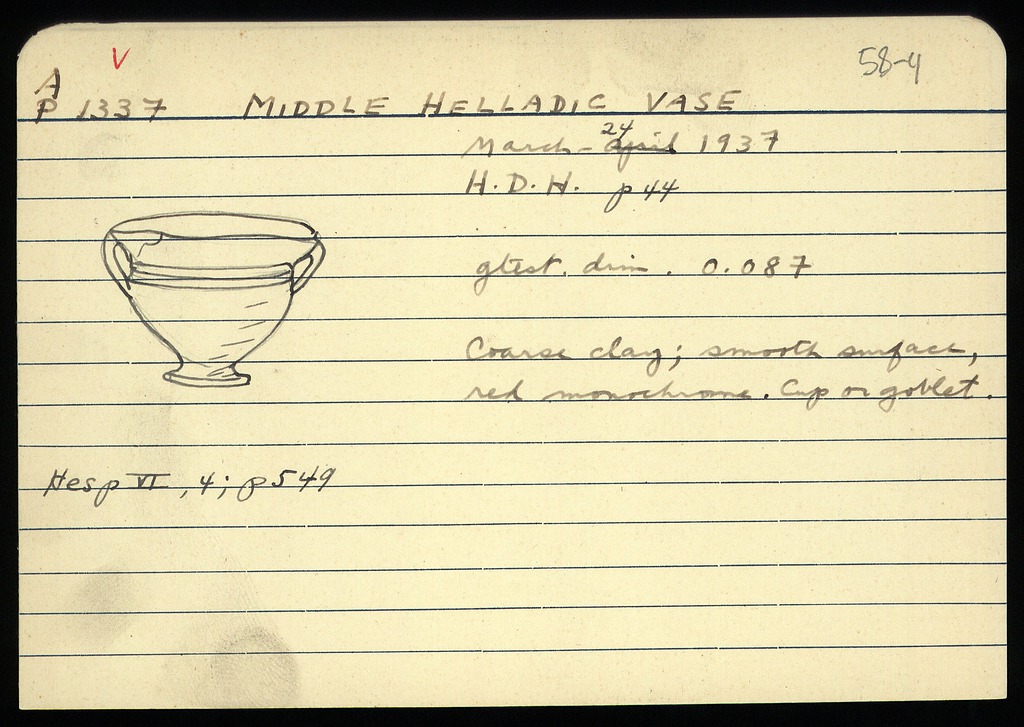 V
58-4
A
P 1337 MIDDLE HELLADIC VASE
24
March - April 1937
H.D.H. p 44
gtest. dim. 0.087
Coarse clay; smooth surface,
red monochrome. Cup or goblet.
Hesp VI, 4; p 549